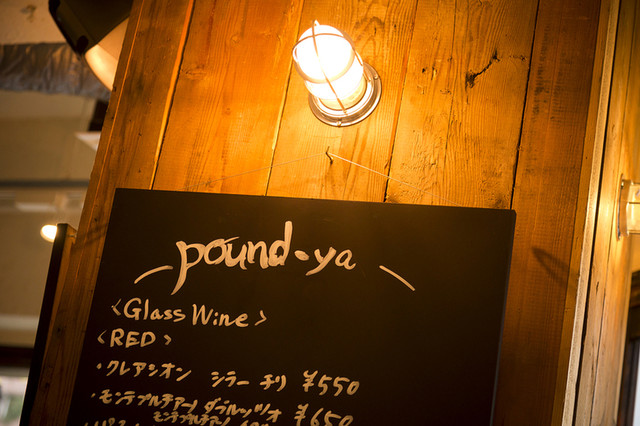 pound-ya
<Glass Wine>
<RED>
・クレアシオン シラー チリ ¥550
・モンテプルチアーノ ダブルッツォ ¥650
モンテプルチアーノ